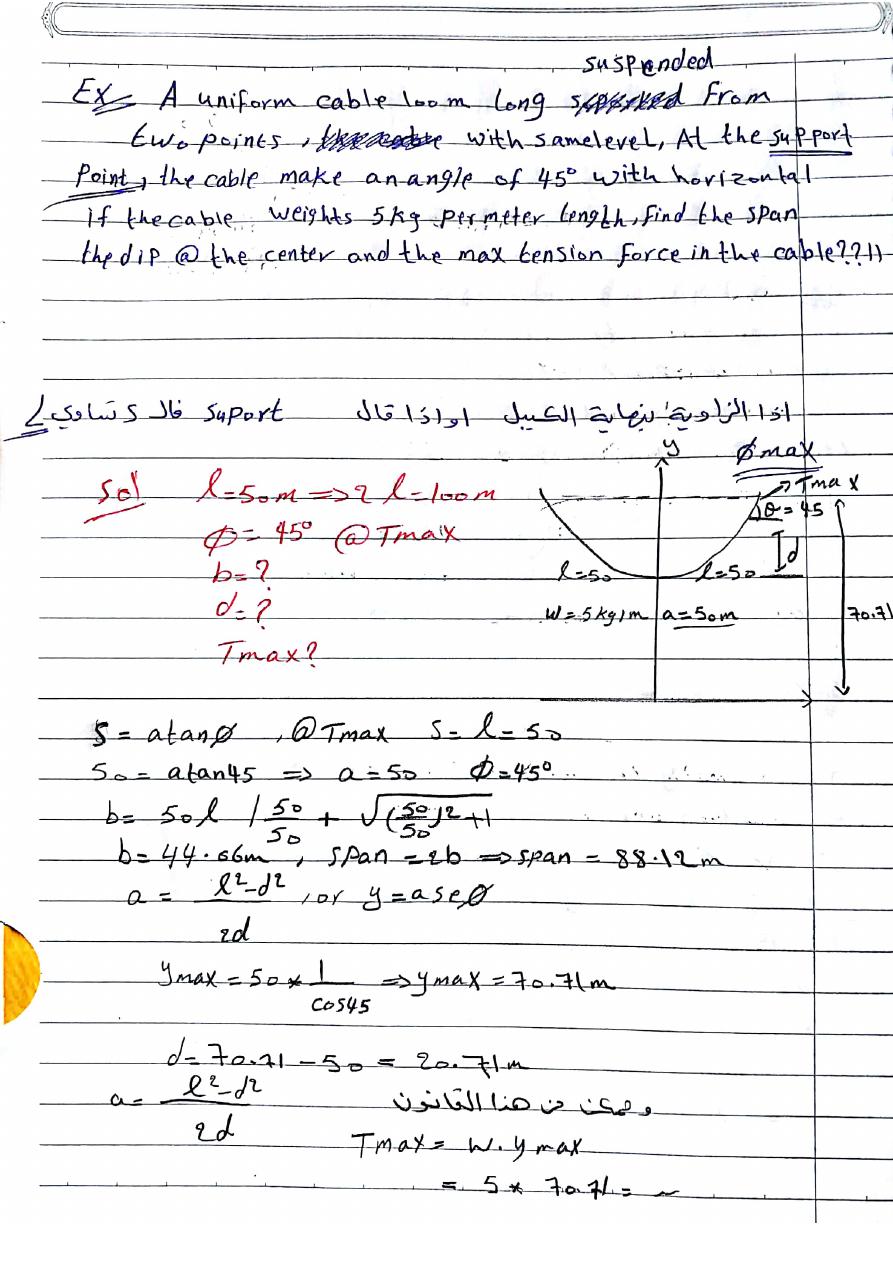 suspended
Ex A uniform cable 100m long from
two points, with same level, At the support
Point, the cable make an angle of 45° with horizontal
if the cable weights 5kg per meter length, find the span
the dip @ the center and the max tension force in the cable??!!
اذا الزاوية بنهاية الكيبل او اذا قال suport فال S تساوي l
y
Ømax
Tmax
θ=45
d
l=50
l=50
w=5kg/m
a=50m
70.71
Sol l=50m ⇒ 2l=100m
Ø=45° @Tmax
b=?
d=?
Tmax?
S = atanØ , @Tmax S=l=50
50=atan45 ⇒ a=50 Ø=45°
b= 50l | 50/50 + √(50/50)2+1
b=44.06m , span =2b ⇒ span = 88.12m
a = l²-d²/2d , or y=aseØ
ymax = 50 * 1/cos45 ⇒ ymax = 70.71m
d= 70.71 - 50 = 20.71m
a= l²-d²/2d وممكن من هذا القانون
Tmax= w.ymax
= 5 * 70.71 = ~